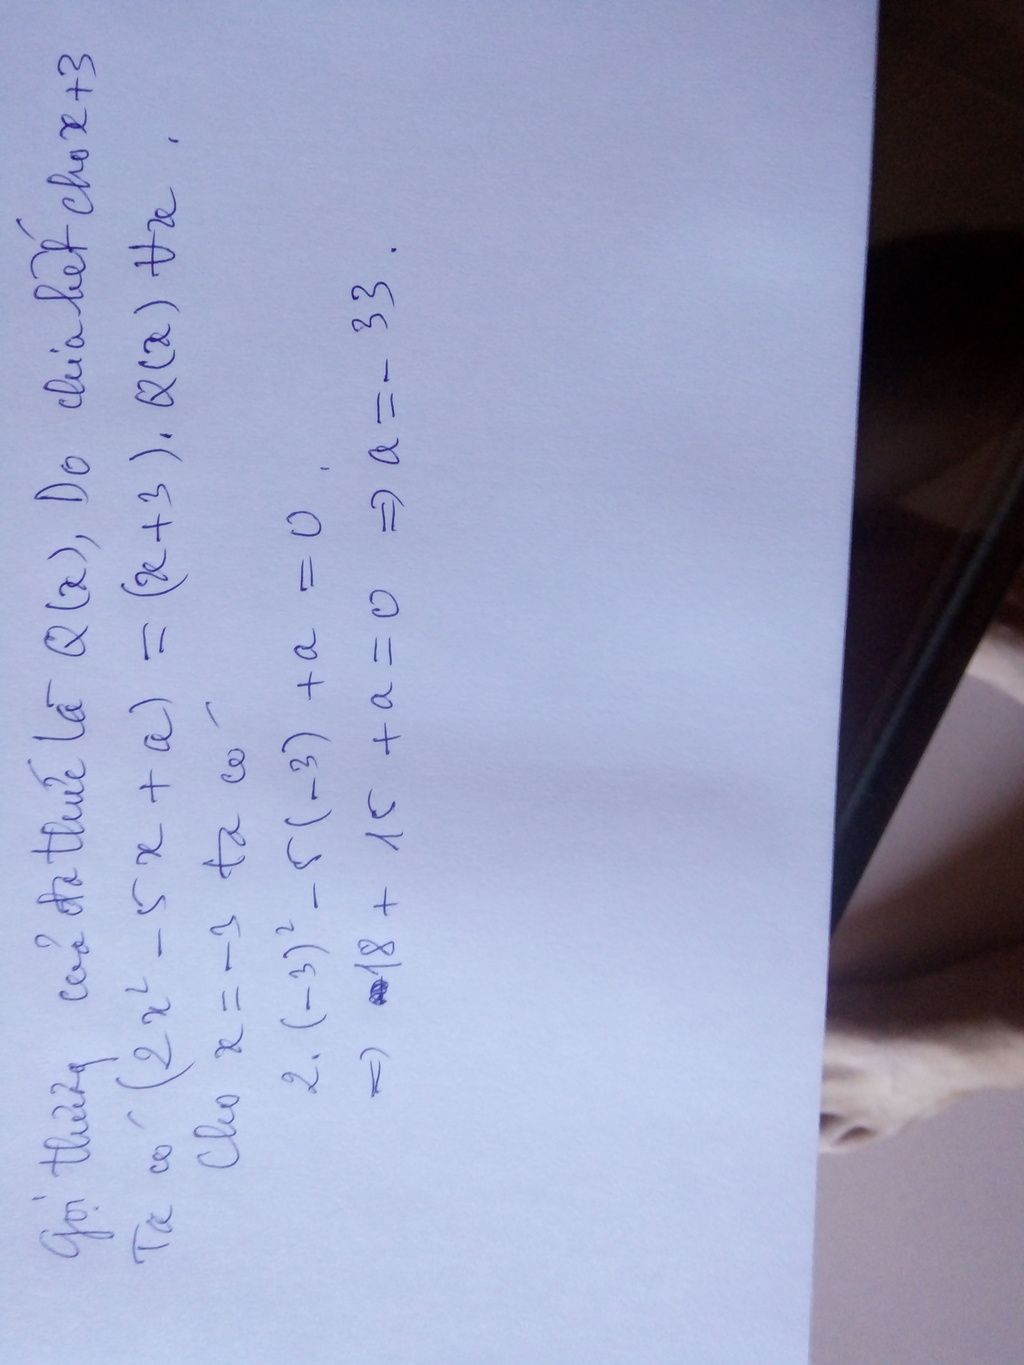 Gọi thương của đa thức là Q(x), Do chia hết cho x+3
Ta có (2x² - 5x + a) = (x+3). Q(x) ∀x.
Cho x = -3 ta có
2. (-3)² - 5(-3) + a = 0.
=> 18 + 15 + a = 0 => a = - 33.